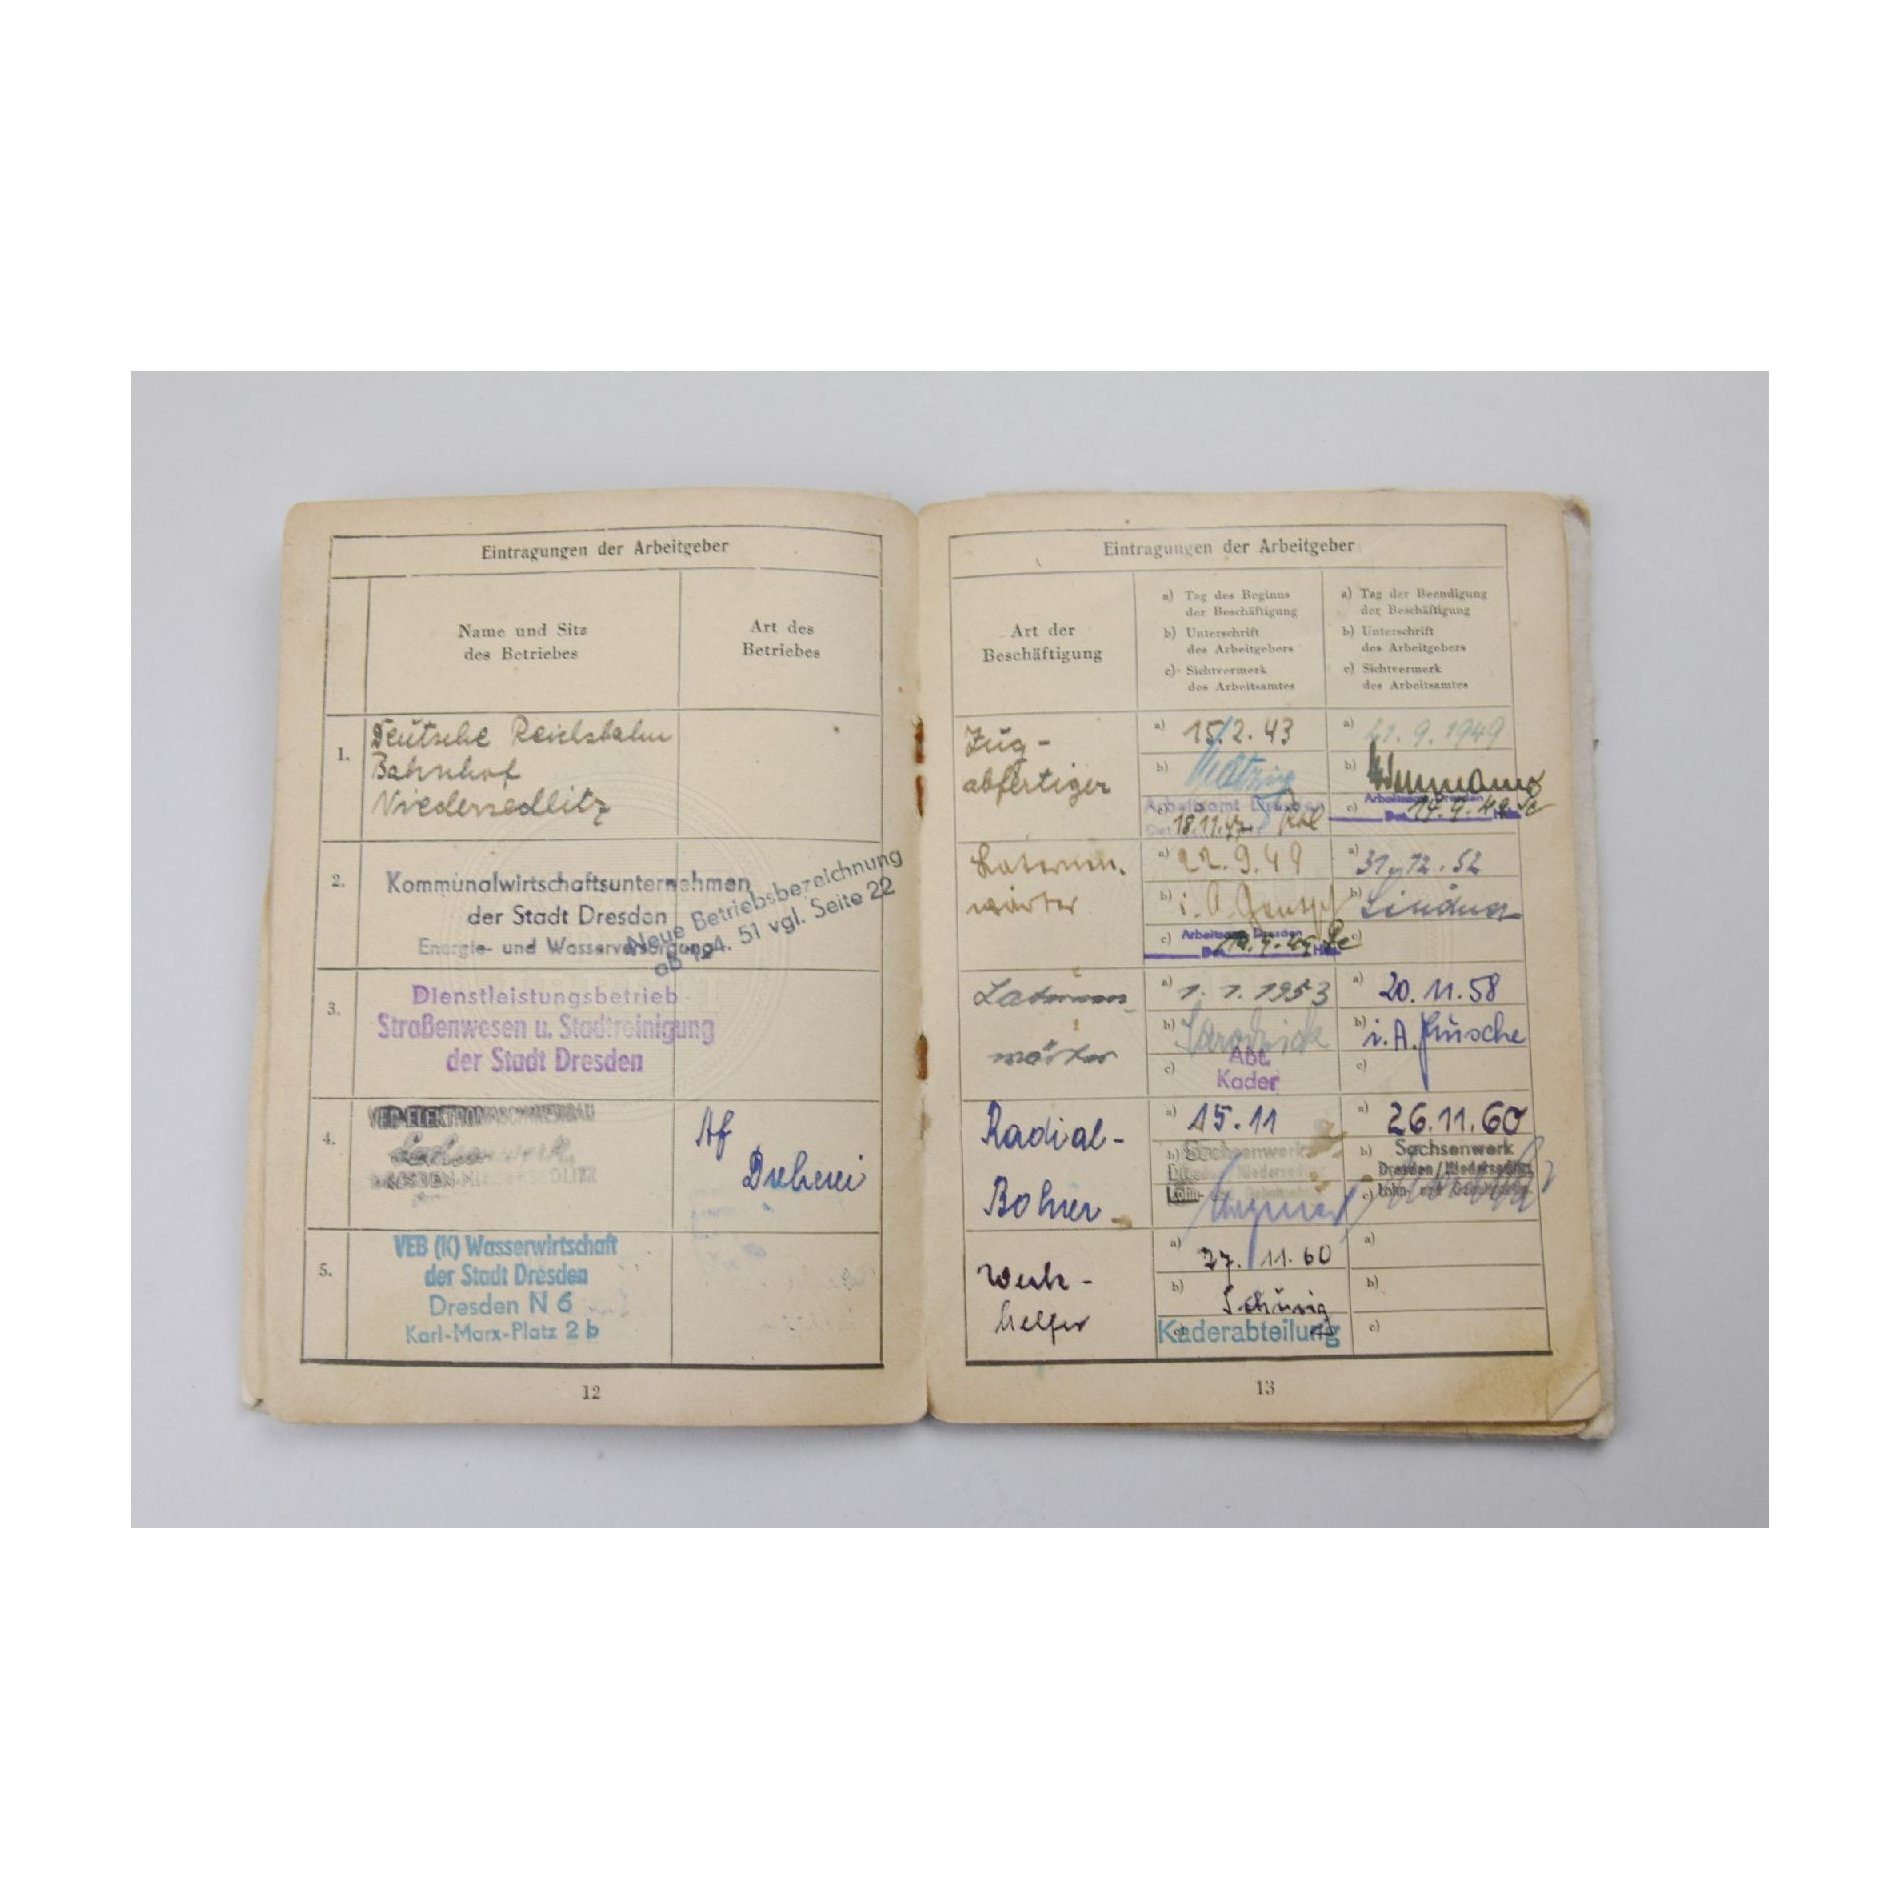 Eintragungen der Arbeitgeber
Name und Sitz
des Betriebes
Art des
Betriebes
1.
Deutsche Reichsbahn
Bahnhof
Niedersedlitz
2.
Kommunalwirtschaftsunternehmen
der Stadt Dresden
Energie- und Wasserversorgung
Neue Betriebsbezeichnung
ab 4. 51 vgl. Seite 22
3.
Dienstleistungsbetrieb
Straßenwesen u. Stadtreinigung
der Stadt Dresden
4.
VEB-ELEKTROMASCHINENBAU
Sachsenwerk
DRESDEN-NIEDERSEDLITZ
Af
Dreherei
5.
VEB (K) Wasserwirtschaft
der Stadt Dresden
Dresden N 6
Karl-Marx-Platz 2 b
12
Eintragungen der Arbeitgeber
Art der
Beschäftigung
a) Tag des Beginns
der Beschäftigung
b) Unterschrift
des Arbeitgebers
c) Sichtvermerk
des Arbeitsamtes
a) Tag der Beendigung
der Beschäftigung
b) Unterschrift
des Arbeitgebers
c) Sichtvermerk
des Arbeitsamtes
Zug-
abfertiger
a) 15.2.43
b)
Arbeitsamt Dresden
18.11.47
a) 21.9.1949
b)
c) Arbeitsamt Dresden
14.9.49
Laternen-
wärter
a) 22.9.49
b) i.A.
c) Arbeitsamt Dresden
a) 31.12.52
b)
c)
Laternen-
wärter
a) 1.1.1953
b)
Abt.
c) Kader
a) 20.11.58
b) i.A.
c)
Radial-
Bohrer
a) 15.11
b) Sachsenwerk
Dresden/Niedersedlitz
a) 26.11.60
b) Sachsenwerk
Dresden/Niedersedlitz
c) Lohn- und
Werk-
helfer
a) 27.11.60
b)
Kaderabteilung
a)
b)
c)
13